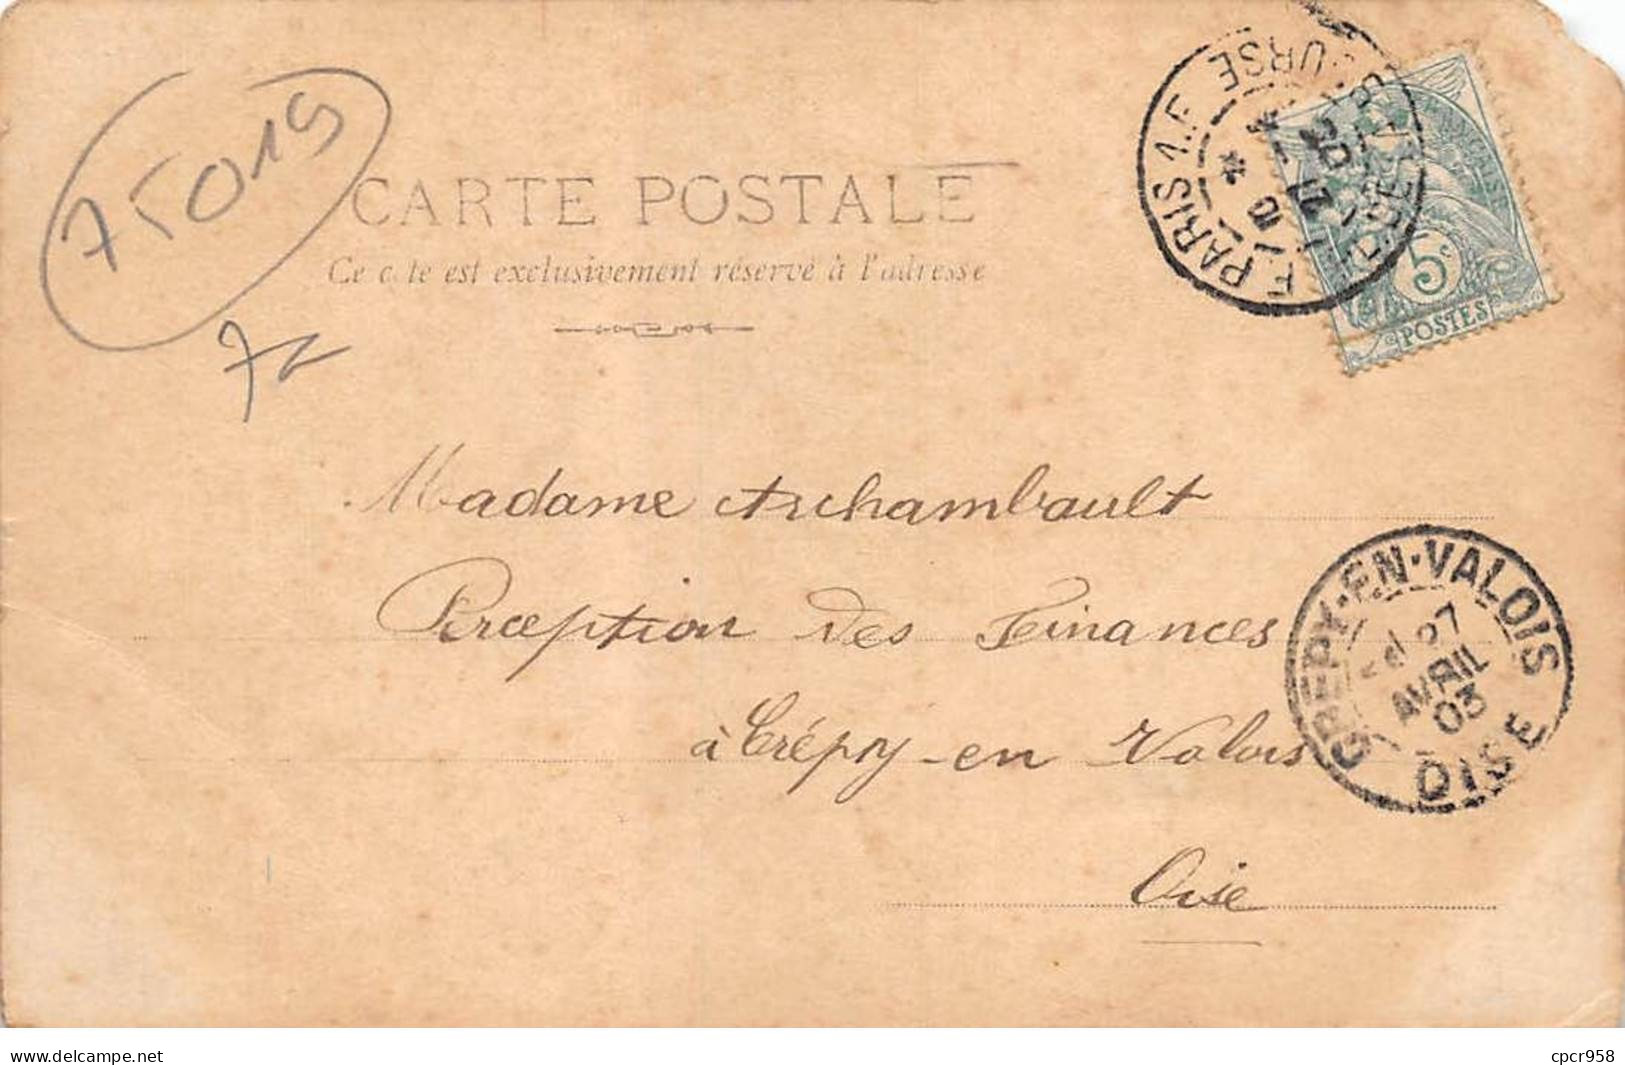 75019
72
CARTE POSTALE
Ce côté est exclusivement réservé à l'adresse
PARIS
5c
POSTES
Madame Archambault
Perception des Finances
à Crépy-en Valois
Oise
CREPY-EN-VALOIS
27
AVRIL
03
OISE
www.delcampe.net
cpcr958